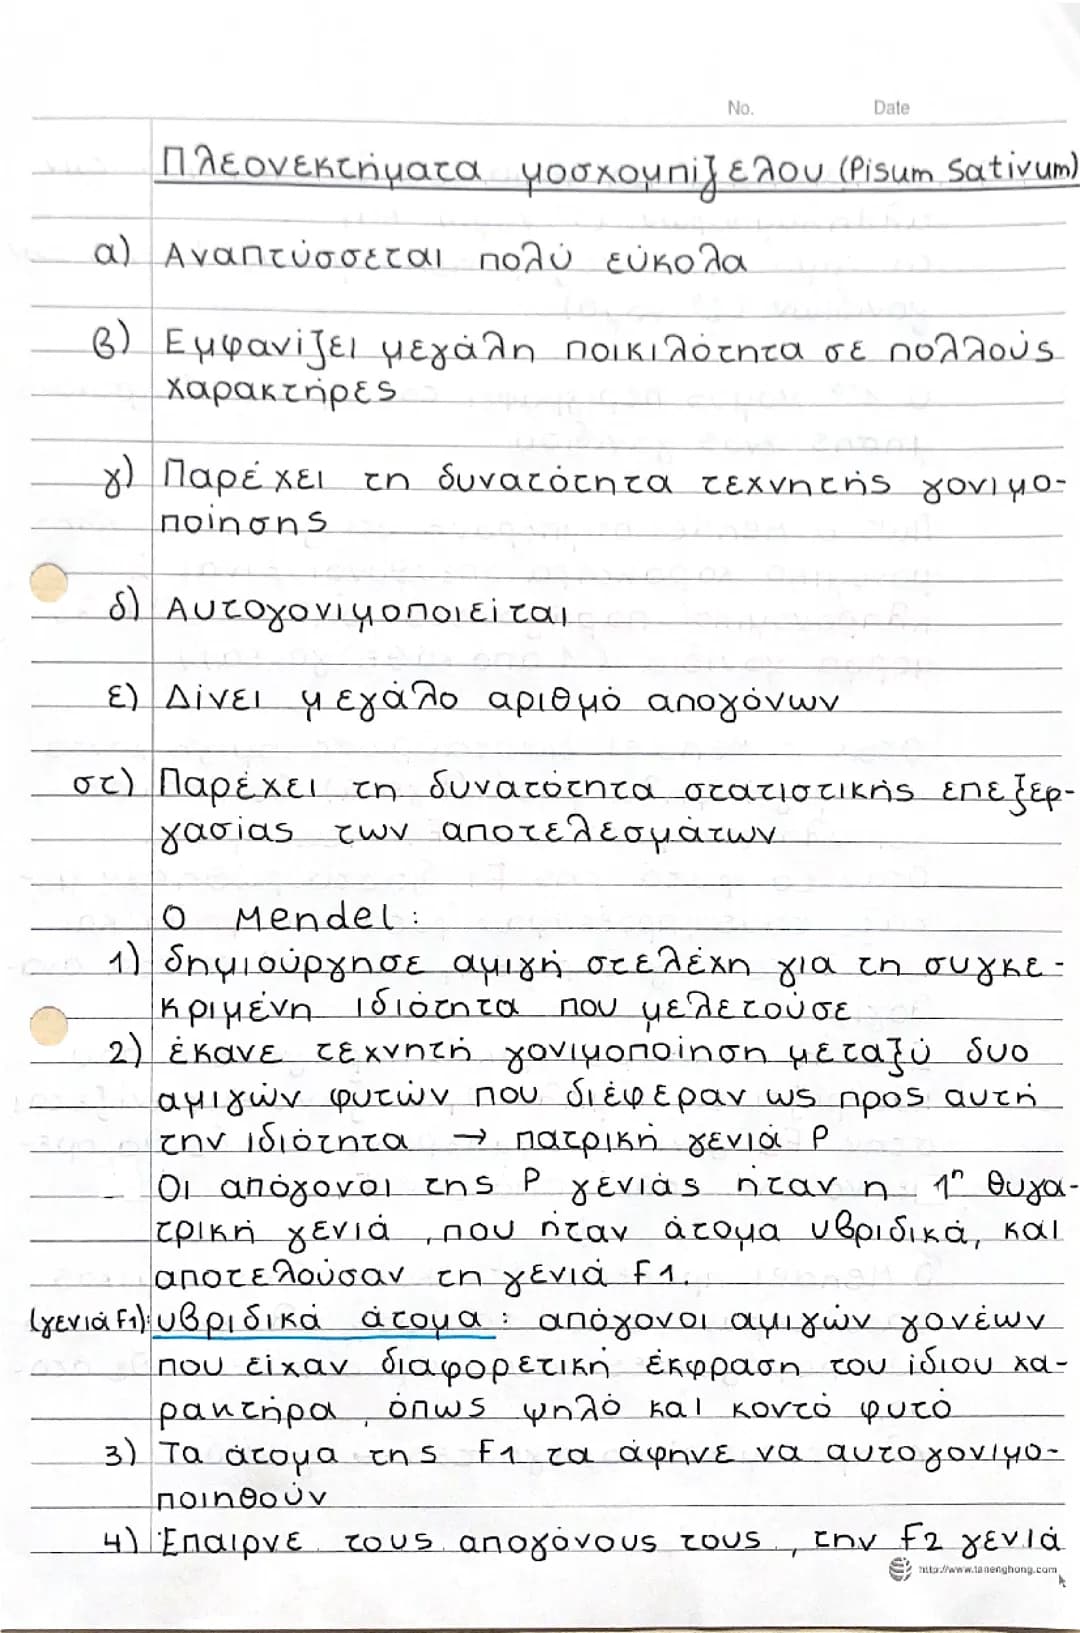 No. Date
Πλεονεκτήματα μοσχομπίζελου (Pisum Sativum)
α) Αναπτύσσεται πολύ εύκολα
β) Εμφανίζει μεγάλη ποικιλότητα σε πολλούς
χαρακτήρες
γ) Παρέχει τη δυνατότητα τεχνητής γονιμο-
ποίησης
δ) Αυτογονιμοποιείται
ε) Δίνει μεγάλο αριθμό απογόνων
στ) Παρέχει τη δυνατότητα στατιστικής επεξερ-
γασίας των αποτελεσμάτων
Ο Mendel:
1) δημιούργησε αμιγή στελέχη για τη συγκε-
κριμένη ιδιότητα που μελετούσε
2) έκανε τεχνητή γονιμοποίηση μεταξύ δυο
αμιγών φυτών που διέφεραν ως προς αυτή
την ιδιότητα → πατρική γενιά P
Οι απόγονοι της P γενιάς ήταν η 1η θυγα-
τρική γενιά, που ήταν άτομα υβριδικά, και
αποτελούσαν τη γενιά F1.
(γενιά F1): υβριδικά άτομα: απόγονοι αμιγών γονέων
που είχαν διαφορετική έκφραση του ίδιου χα-
ρακτήρα, όπως ψηλό και κοντό φυτό
3) Τα άτομα της F1 τα άφηνε να αυτογονιμο-
ποιηθούν
4) Έπαιρνε τους απογόνους τους, την F2 γενιά
http://www.tanenghong.com